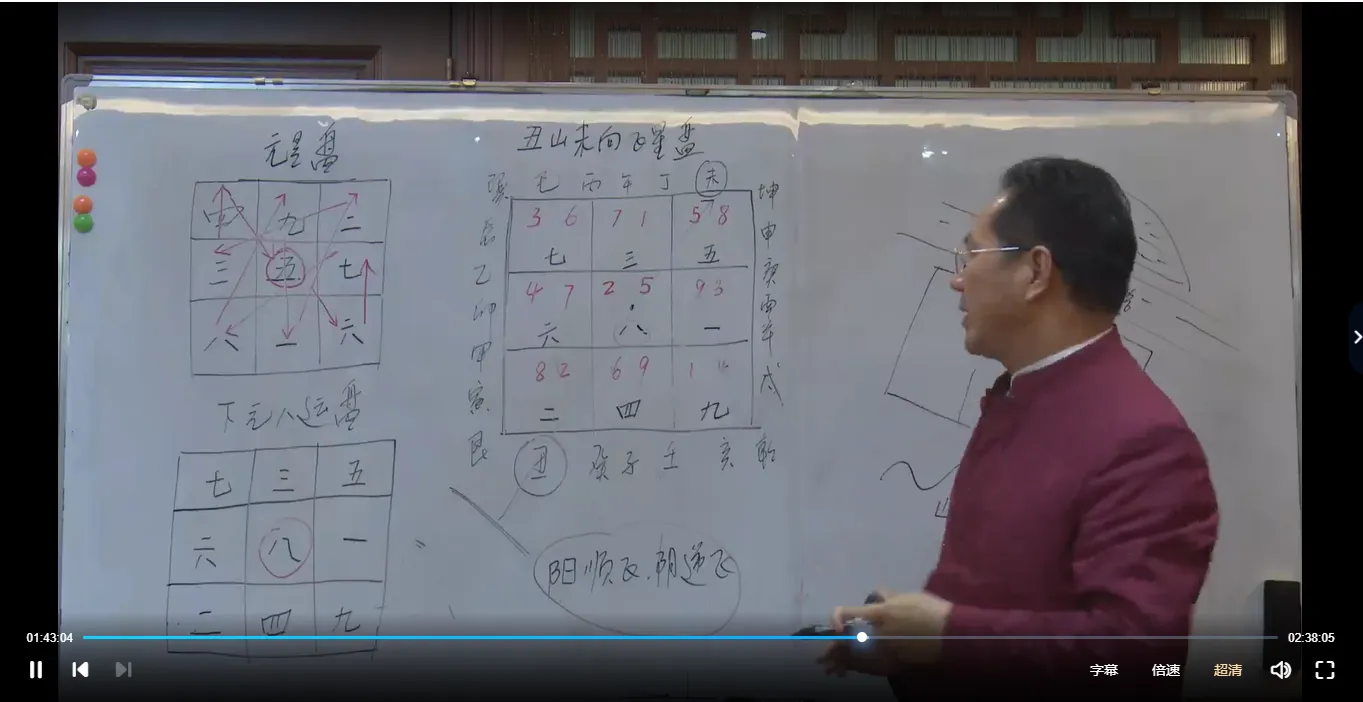 元旦盘
九 二
三 五 七
八 一 六
下元八运盘
七 三 五
六 八 一
二 四 九
丑山未向飞星盘
丙 午 丁 未 坤
3 6 7 1 5 8
七 三 五
4 7 2 5 9 3
六 八 一
8 2 6 9 1
二 四 九
乙
卯
甲
寅
艮
申
戌
丑 癸 子 壬 亥 乾
阳顺飞.阴逆飞
01:43:04
02:38:05
字幕 倍速 超清